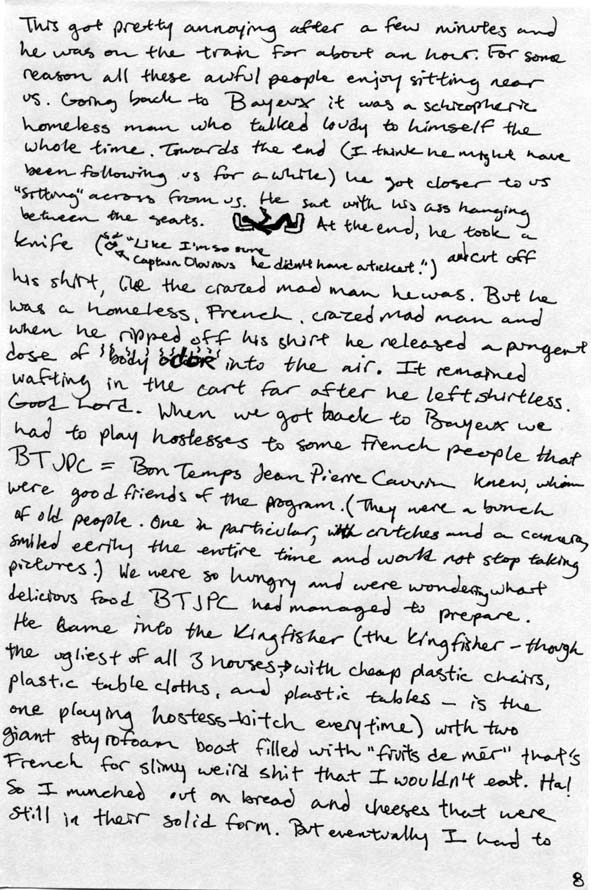 This got pretty annoying after a few minutes and
he was on the train for about an hour. For some
reason all these awful people enjoy sitting near
us. Going back to Bayeux it was a schizopheric
homeless man who talked loudly to himself the
whole time. Towards the end (I think he might have
been following us for a while) he got closer to us
"sitting" across from us. He sat with his ass hanging
between the seats. At the end, he took a
knife ("Like I'm so sure
Captain Obvious he didn't have a ticket.") and cut off
his shirt, like the crazed mad man he was. But he
was a homeless, French, crazed mad man and
when he ripped off his shirt he released a pungent
dose of body odor into the air. It remained
wafting in the cart far after he left shirtless.
Good Lord. When we got back to Bayeux we
had to play hostesses to some French people that
BTJPC = Bon Temps Jean Pierre knew, whom
were good friends of the program. (They were a bunch
of old people. One in particular, with crutches and a camera,
smiled eerily the entire time and would not stop taking
pictures.) We were so hungry and were wondering what
delicious food BTJPC had managed to prepare.
He came into the Kingfisher (the Kingfisher - though
the ugliest of all 3 houses, with cheap plastic chairs,
plastic table cloths, and plastic tables - is the
one playing hostess-bitch everytime) with two
giant styrofoam boat filled with "fruits de mér" that's
French for slimy weird shit that I wouldn't eat. Ha!
So I munched out on bread and cheeses that were
still in their solid form. But eventually I had to
8